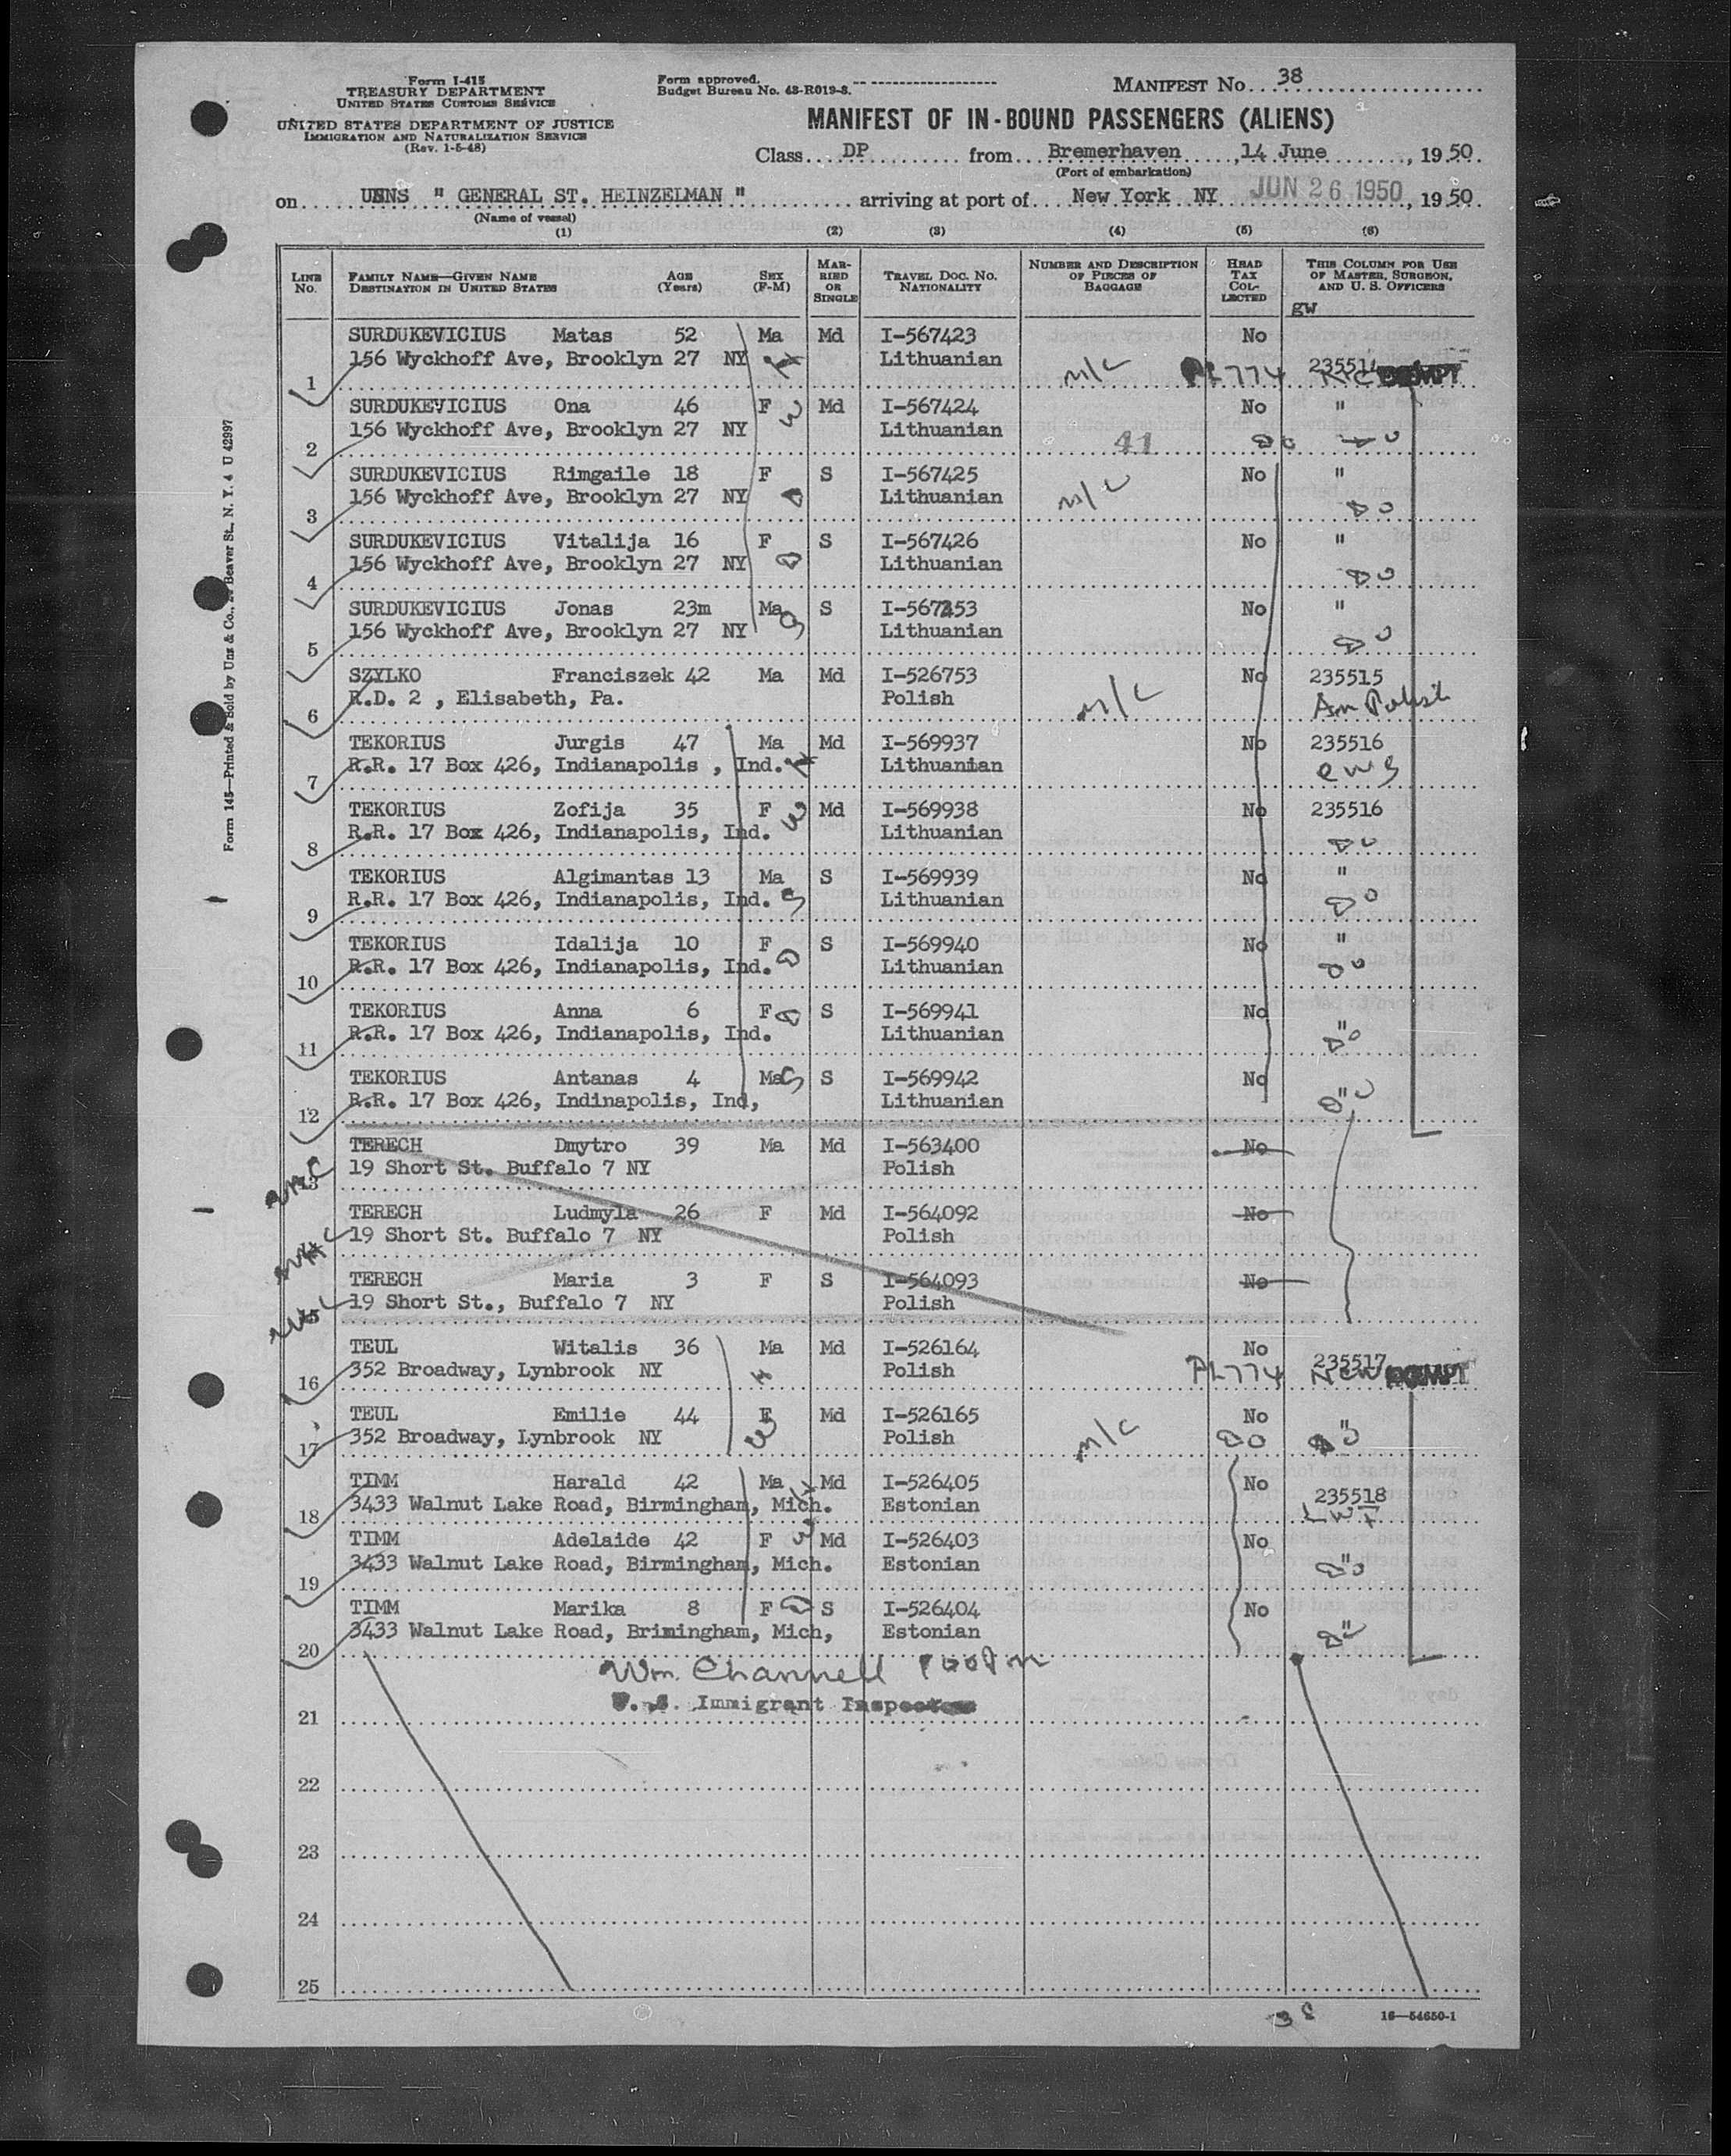 Form I-415
TREASURY DEPARTMENT
UNITED STATES CUSTOMS SERVICE
UNITED STATES DEPARTMENT OF JUSTICE
IMMIGRATION AND NATURALIZATION SERVICE
(Rev. 1-5-48)
Form approved.
Budget Bureau No. 43-R019-8.
MANIFEST No. 38
MANIFEST OF IN-BOUND PASSENGERS (ALIENS)
Class DP from Bremerhaven, 14 June, 1950.
(Port of embarkation)
on USNS " GENERAL ST. HEINZELMAN " arriving at port of New York NY JUN 26 1950, 1950.
(Name of vessel)
(1) (2) (3) (4) (5) (6)
LINE No. FAMILY NAME—GIVEN NAME DESTINATION IN UNITED STATES AGE (Years) SEX (F-M) MARRIED OR SINGLE TRAVEL DOC. NO. NATIONALITY NUMBER AND DESCRIPTION OF PIECES OF BAGGAGE HEAD TAX COLLECTED THIS COLUMN FOR USE OF MASTER, SURGEON, AND U. S. OFFICERS
gw
SURDUKEVICIUS Matas 52 Ma Md I-567423 No
1 156 Wyckhoff Ave, Brooklyn 27 NY H Lithuanian m/c PL774 235514 EXEMPT
SURDUKEVICIUS Ona 46 F W Md I-567424 No "
2 156 Wyckhoff Ave, Brooklyn 27 NY Lithuanian 41 Do Do
SURDUKEVICIUS Rimgaile 18 F S I-567425 No "
3 156 Wyckhoff Ave, Brooklyn 27 NY D Lithuanian m/c Do
SURDUKEVICIUS Vitalija 16 F S I-567426 No "
4 156 Wyckhoff Ave, Brooklyn 27 NY D Lithuanian Do
SURDUKEVICIUS Jonas 23m Ma S S I-567253 No "
5 156 Wyckhoff Ave, Brooklyn 27 NY Lithuanian Do
SZYLKO Franciszek 42 Ma Md I-526753 No 235515
6 R.D. 2 , Elisabeth, Pa. Polish m/c Am Polish
TEKORIUS Jurgis 47 Ma Md I-569937 No 235516
7 R.R. 17 Box 426, Indianapolis , Ind. H Lithuanian CWS
TEKORIUS Zofija 35 F W Md I-569938 No 235516
8 R.R. 17 Box 426, Indianapolis, Ind. Lithuanian Do
TEKORIUS Algimantas 13 Ma S I-569939 No "
9 R.R. 17 Box 426, Indianapolis, Ind. S Lithuanian Do
TEKORIUS Idalija 10 F S I-569940 No "
10 R.R. 17 Box 426, Indianapolis, Ind. D Lithuanian Do
TEKORIUS Anna 6 F D S I-569941 No "
11 R.R. 17 Box 426, Indianapolis, Ind. Lithuanian Do
TEKORIUS Antanas 4 Ma S S I-569942 No "
12 R.R. 17 Box 426, Indinapolis, Ind, Lithuanian Do
TERECH Dmytro 39 Ma Md I-563400 No
13 19 Short St. Buffalo 7 NY Polish
TERECH Ludmyla 26 F Md I-564092 No
19 Short St. Buffalo 7 NY Polish
TERECH Maria 3 F S I-564093 No
15 19 Short St., Buffalo 7 NY Polish
TEUL Witalis 36 Ma Md I-526164 No
16 352 Broadway, Lynbrook NY H Polish PL774 235517 NCW EXEMPT
TEUL Emilie 44 F Md I-526165 No "
17 352 Broadway, Lynbrook NY W Polish m/c Do Do
TIMM Harald 42 Ma H Md I-526405 No 235518
18 3433 Walnut Lake Road, Birmingham, Mich. Estonian LWF
TIMM Adelaide 42 F W Md I-526403 No "
19 3433 Walnut Lake Road, Birmingham, Mich. Estonian Do
TIMM Marika 8 F D S I-526404 No "
20 3433 Walnut Lake Road, Brimingham, Mich, Estonian Do
Wm. Channell
21 U. S. Immigrant Inspector
22
23
24
25
38
16—54650-1
Form 145—Printed & Sold by Unz & Co., Beaver St., N. Y. 4 U 42997